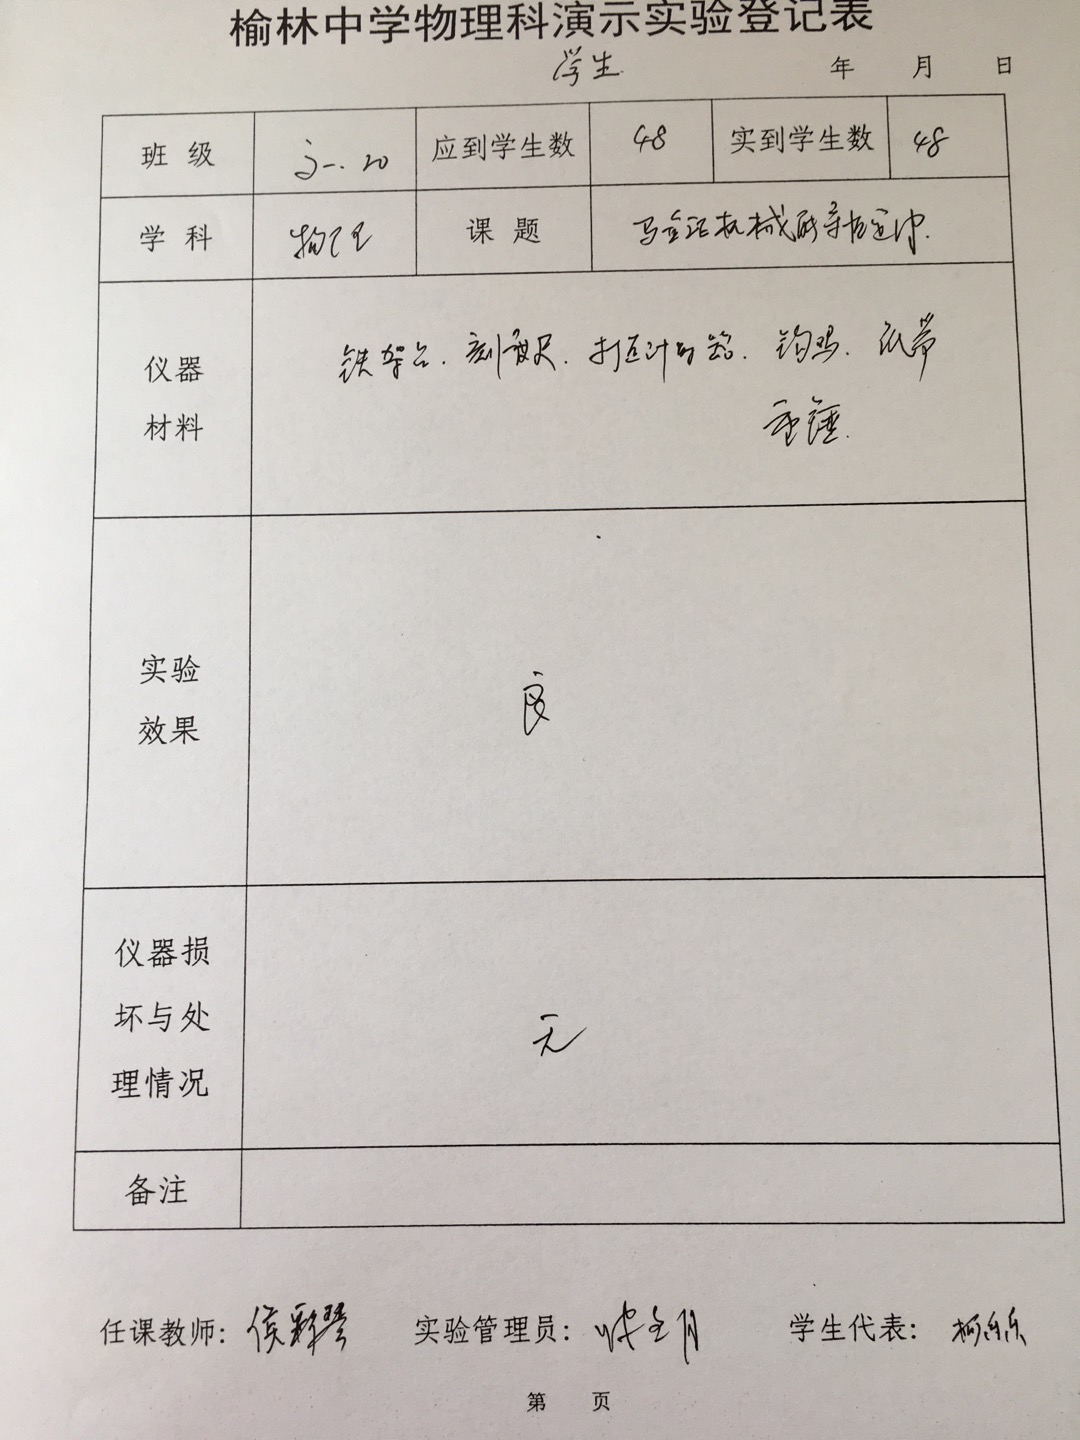 榆林中学物理科演示实验登记表
学生
年 月 日
班 级 高一.20 应到学生数 48 实到学生数 48
学 科 物理 课 题 验证机械能守恒定律.
仪器 铁架台.刻度尺.打点计时器.钩码.纸带
材料 重锤.
实验 良
效果
仪器损
坏与处 无
理情况
备注
任课教师: 侯彩琴 实验管理员: 学生代表: 柯乐乐
第 页